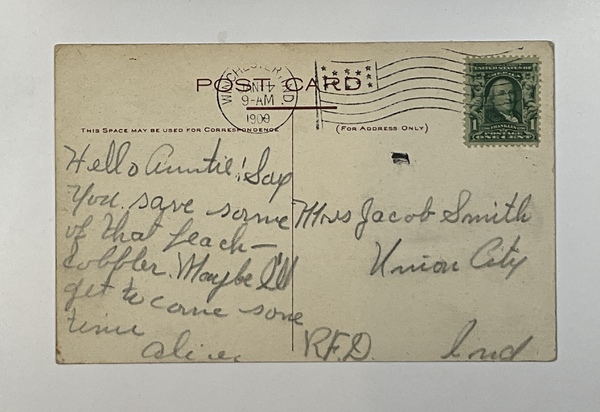 POST CARD
WINCHESTER, IND.
9-AM
1909
UNITED STATES OF AMERICA
FRANKLIN
POSTAGE
ONE CENT
THIS SPACE MAY BE USED FOR CORRESPONDENCE
(FOR ADDRESS ONLY)
Hello Auntie! Say
You save some
of that peach-
cobbler. Maybe I'll
get to come some
time
Alice.
Mrs Jacob Smith
Union City
R.F.D. Ind